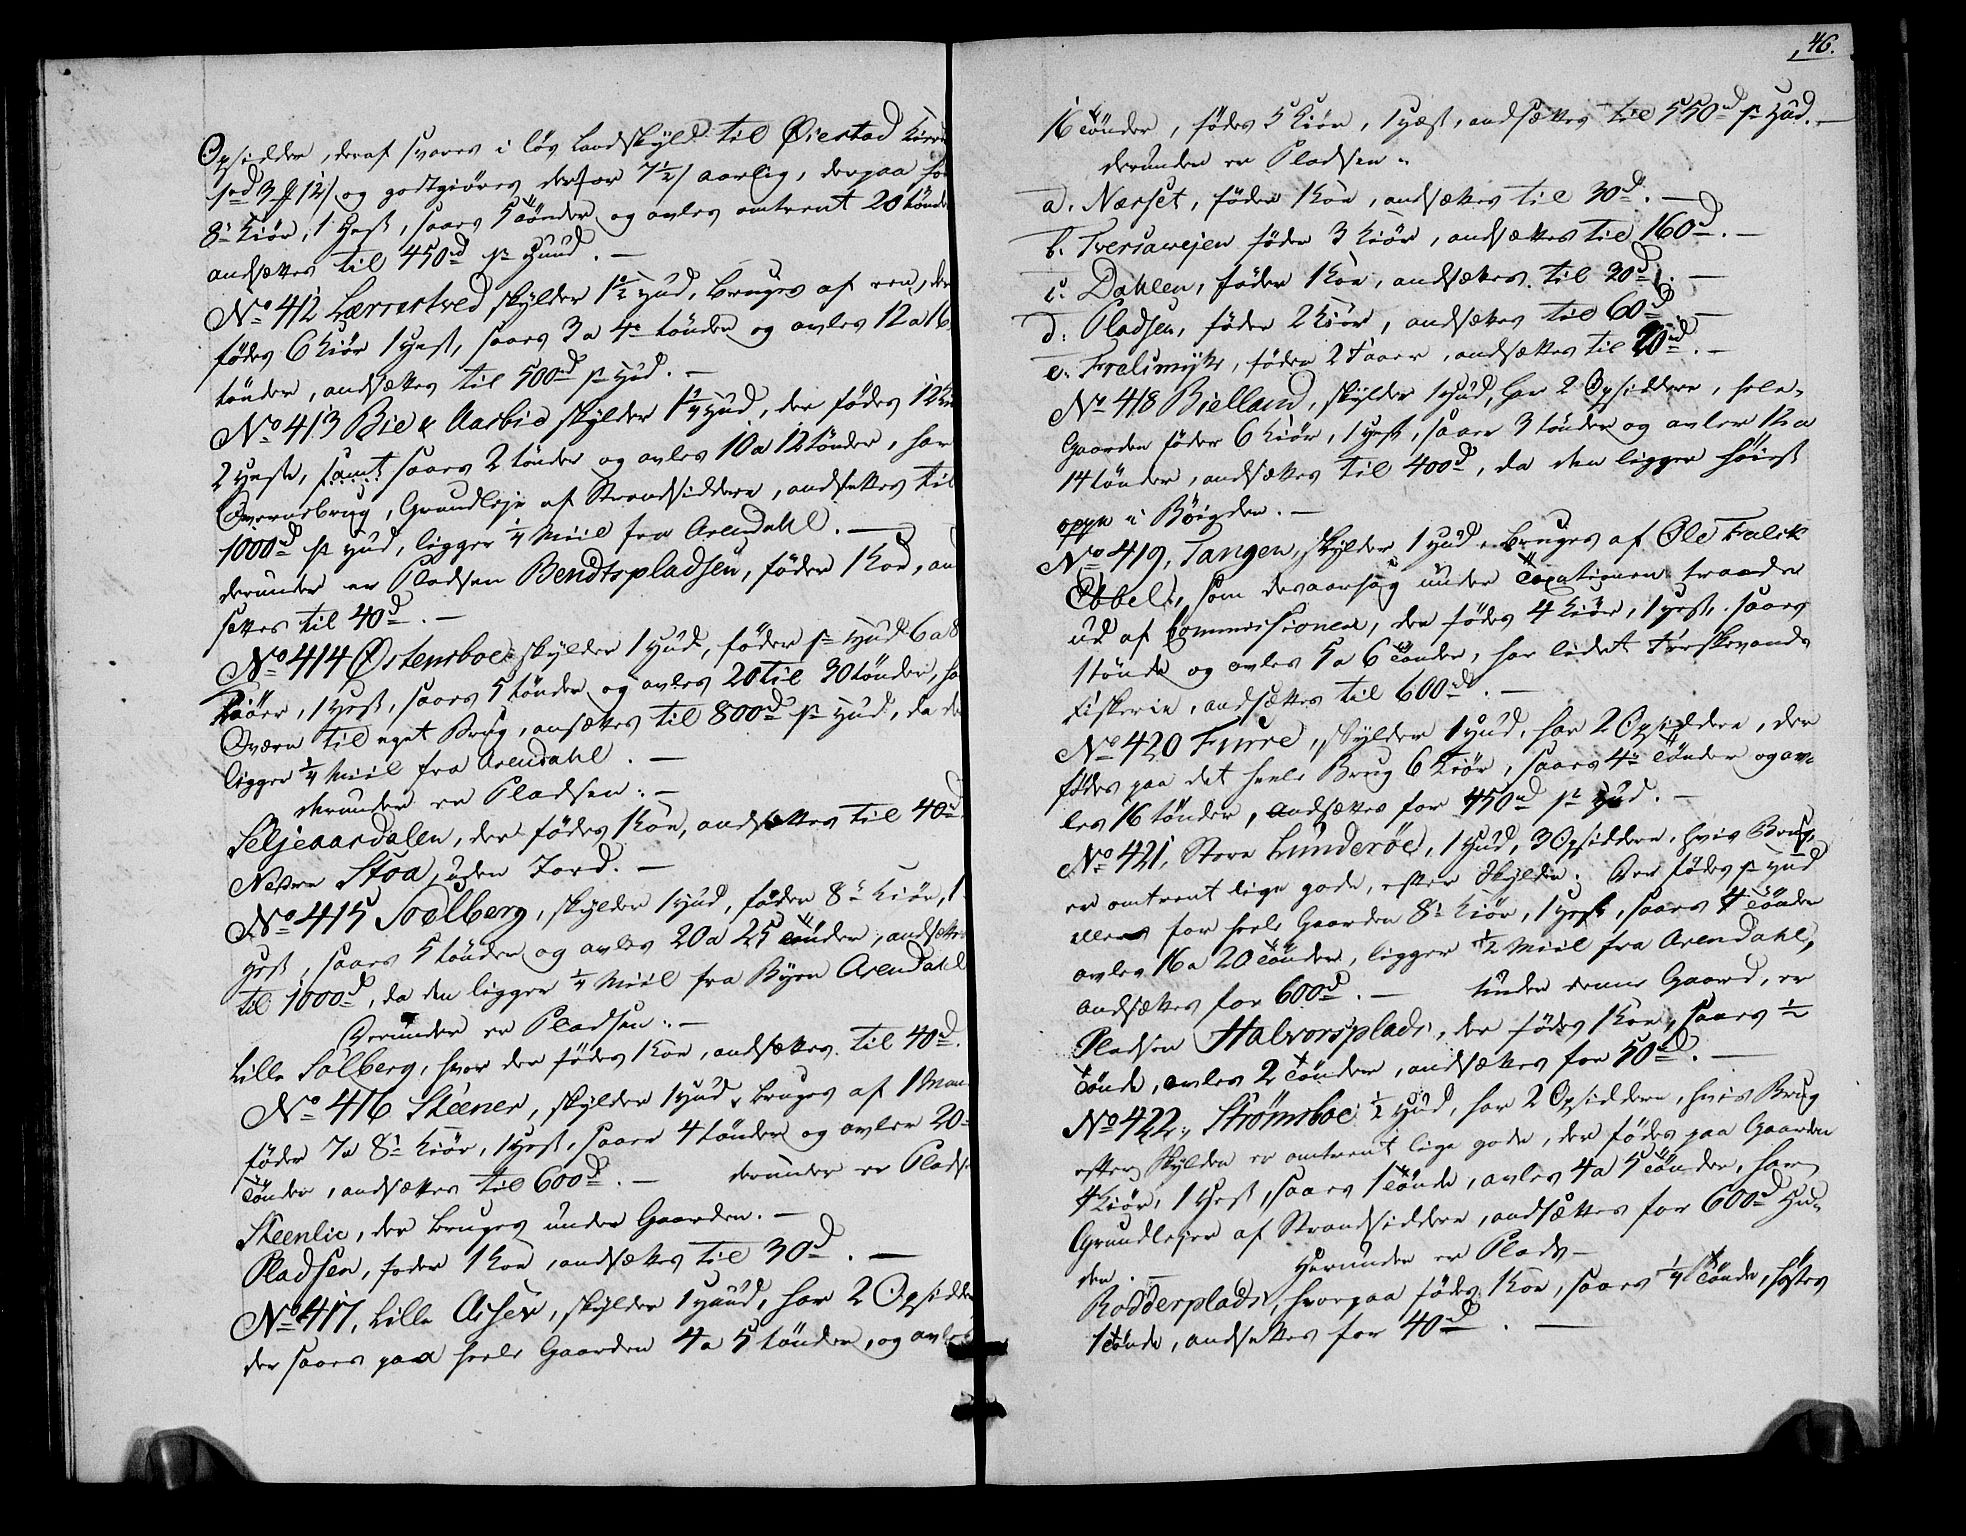 Opsidder, deraf svares i løs Landskyld til Øiestad Kirke
og godtgiøres derfor 7½ s aarlig, derpaa fø
8te Kiør, 1 Hest, saaes 5 Tønder og avles omtrent 20 Tønder
andsættes til 450rd pr Huud. —
No 412 Lærrestved skylder 1½ Hud, bruges af een, der
fødes 6 Kiør 1 Hest, saaes 3 a 4re Tønder og avles 12 a 16
Tønder, andsættes til 500rd pr Hud. —
No 413 Bie & Aasbie skylder 1¼ Hud, der fødes 12 Kiør
2 Heste, samt saaes 2 Tønder og avles 10 a 12 Tønder, har
Qværnebrug, Grundleje af Strandsiddere, andsættes til
1000rd pr Hud, ligger ¼ Miil fra Arendahl. —
derunder er Pladsen Bendtspladsen, føder 1 Koe, and
sættes til 40rd. —
No 414 Østensboe skylder 1 Hud, føder pr Hud 6 a 8
Kiøer, 1 Hest, saaes 5 Tønder og avles 20 til 30 Tønder, ha
Qværn til eget Brug, ansættes til 800rd pr Hud, da de
ligger ¼ Miil fra Arendahl. —
derunder er Pladsen: —
Seljeaardalen, der fødes 1 Koe, andsættes til 40rd
Nedre Stoa, uden Jord. —
No 415 Soelberg, skylder 1 Hud, føder 8te Kiør, 1
Hest, saaes 5 Tønder og avles 20 a 25 Tønder, andsættes
til 1000rd, da den ligger ¼ Miil fra Byen Arendahl
Derunder er Pladsen: —
Lille Solberg, hvor der fødes 1 Koe, andsættes til 40rd.
No 416 Steener, skylder 1 Hud, bruges af 1 Man
føder 7 a 8te Kiør, 1 Hest, saaer 4 Tønder og avler 20
Tønder, andsættes til 600rd. — derunder er Pladse
Steenlie, der bruges under Gaarden. —
Pladsen, føder 1 Koe, andsættes til 30rd. —
No 417, Lille Assev, skylder 1 Huud, har 2 Opsidder
der saaes paa heele Gaarden 4 a 5 Tønder, og avles
46.
16 Tønder, fødes 5 Kiør, 1 Hest, andsættes til 550rd pr Hud. —
derunder er Pladsen:
a. Nærset, føder 1 Koe, andsættes til 30rd. —
b. Tversawejen føder 3 Kiør, andsættes til 160rd. —
c. Dahlen, føder 1 Koe, andsættes til 20rd. —
d. Pladsen, føder 2 Kiør, andsættes til 60rd. —
e. Frolismyhr, føder 2 Faaer, andsættes til 20rd. —
No 418 Bielland, skylder 1 Hud, har 2 Opsiddere, hele
Gaarden føder 6 Kiør, 1 Hest, saaer 3 Tønder og avler 12 a
14 Tønder, andsættes til 400rd, da den ligger høiest
oppe i Bøigden. —
No 419, Tangen, skylder 1 Hud, bruges af Ole Falck
Ebbell, som desaarsag under Taxationen traadde
ud af Commissionen, der fødes 4 Kiør, 1 Hest, saaes
1 Tønde og avles 5 a 6 Tønder, har lidet Ferskevands
Fiskerie, andsættes til 600rd. —
No 420 Furre, skylder 1 Hud, har 2 Opsiddere, der
fødes paa det heele Brug 6 Kiør, saaes 4re Tønder og av-
les 16 Tønder, andsættes for 450rd pr Hud. —
No 421, Store Lunderøe, 1 Hud, 3 Opsiddere, hvis Brug,
er omtrent lige gode, efter Skylden: Der fødes pr Hud
eller for heele Gaarden 8te Kiør, 1 Hest, saaes 4 Tønder
avles 16 a 20 Tønder, ligger ½ Miil fra Arendahl,
andsættes for 600rd. — Under denne Gaard, er
Pladsen Halvorsplads, der fødes 1 Koe, saaes ½
Tønde, avles 2 Tønder, andsættes for 50rd. —
No 422, Strømsboe ½ Hud, har 2 Opsiddere, hvis Brug
efter Skylden er omtrent lige gode, der fødes paa Gaarden
4 Kiør, 1 Hest, saaes 1 Tønde, avles 4 a 5 Tønder, har
Grundlejer af Strandsiddere, andsættes for 600rd Hu-
den. — Herunder er Plads —
Rodderplads, hvorpaa fødes 1 Koe, saaes ¼ Tønde, høstes
1 Tønde, andsættes for 40rd. —